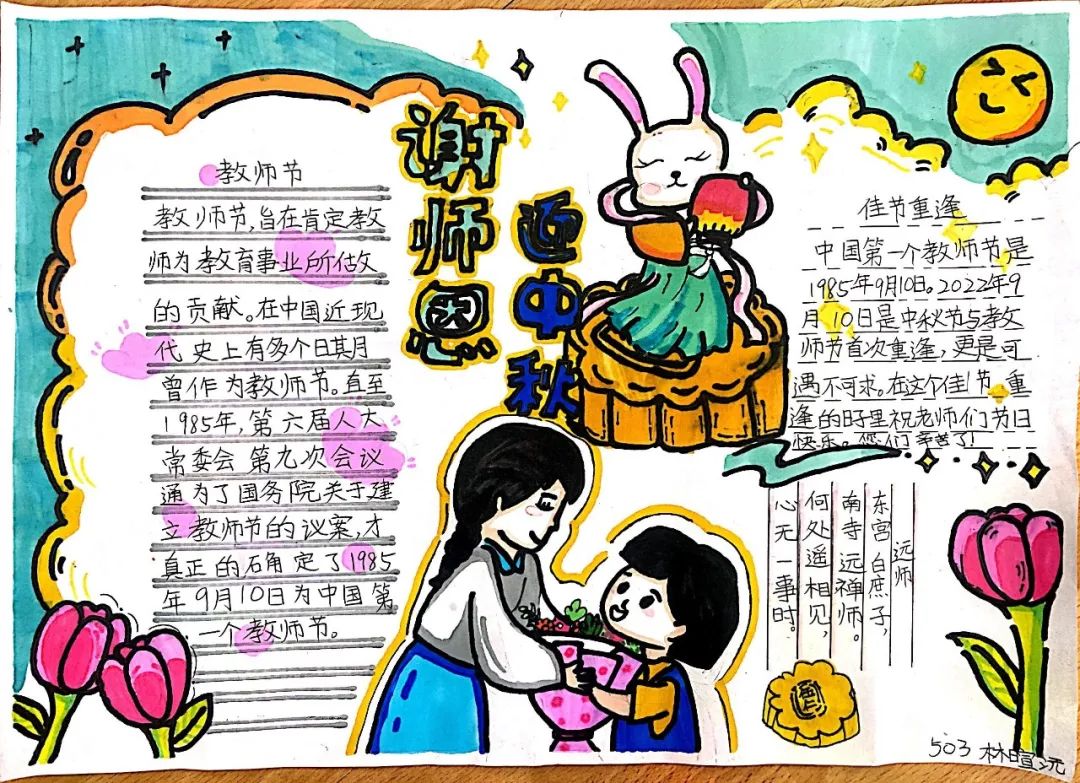 谢师恩
迎中秋
教师节
教师节,旨在肯定教
师为教育事业所做
的贡献。在中国近现
代史上有多个日期月
曾作为教师节。直至
1985年,第六届人大
常委会第九次会议
通为了国务院关于建
立教师节的议案,才
真正的确定了1985
年9月10日为中国第
一个教师节。
佳节重逢
中国第一个教师节是
1985年9月10日。2022年9
月10日是中秋节与教
师节首次重逢,更是可
遇不可求。在这个佳节重
逢的日子里祝老师们节日
快乐。您们辛苦了!
远师
东宫白庶子,
南寺远禅师。
何处遥相见,
心无一事时。
503 林暄沅